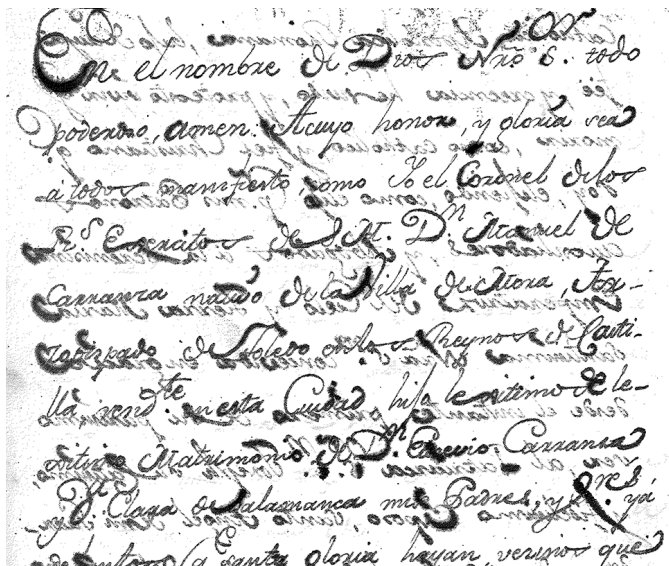 En el nombre de Dios Nrõ S.or todo
poderoso, amen. Acuyo honor, y gloria sea
a todos manifiesto, como Yo el Coronel delos
R.s Exercitos de S.M. D.n Manuel de
Carranza nativo de la Villa de Mora, Arz-
obizpado de Toledo en los Reynos de Casti-
lla, rend.te en esta Ciudad, hijo lexitimo de le-
xitimo Matrimonio de D.n Carranza
D.a Clara de Salamanca mis Padres, y S.res ya
santa gloria hayan vecinos que